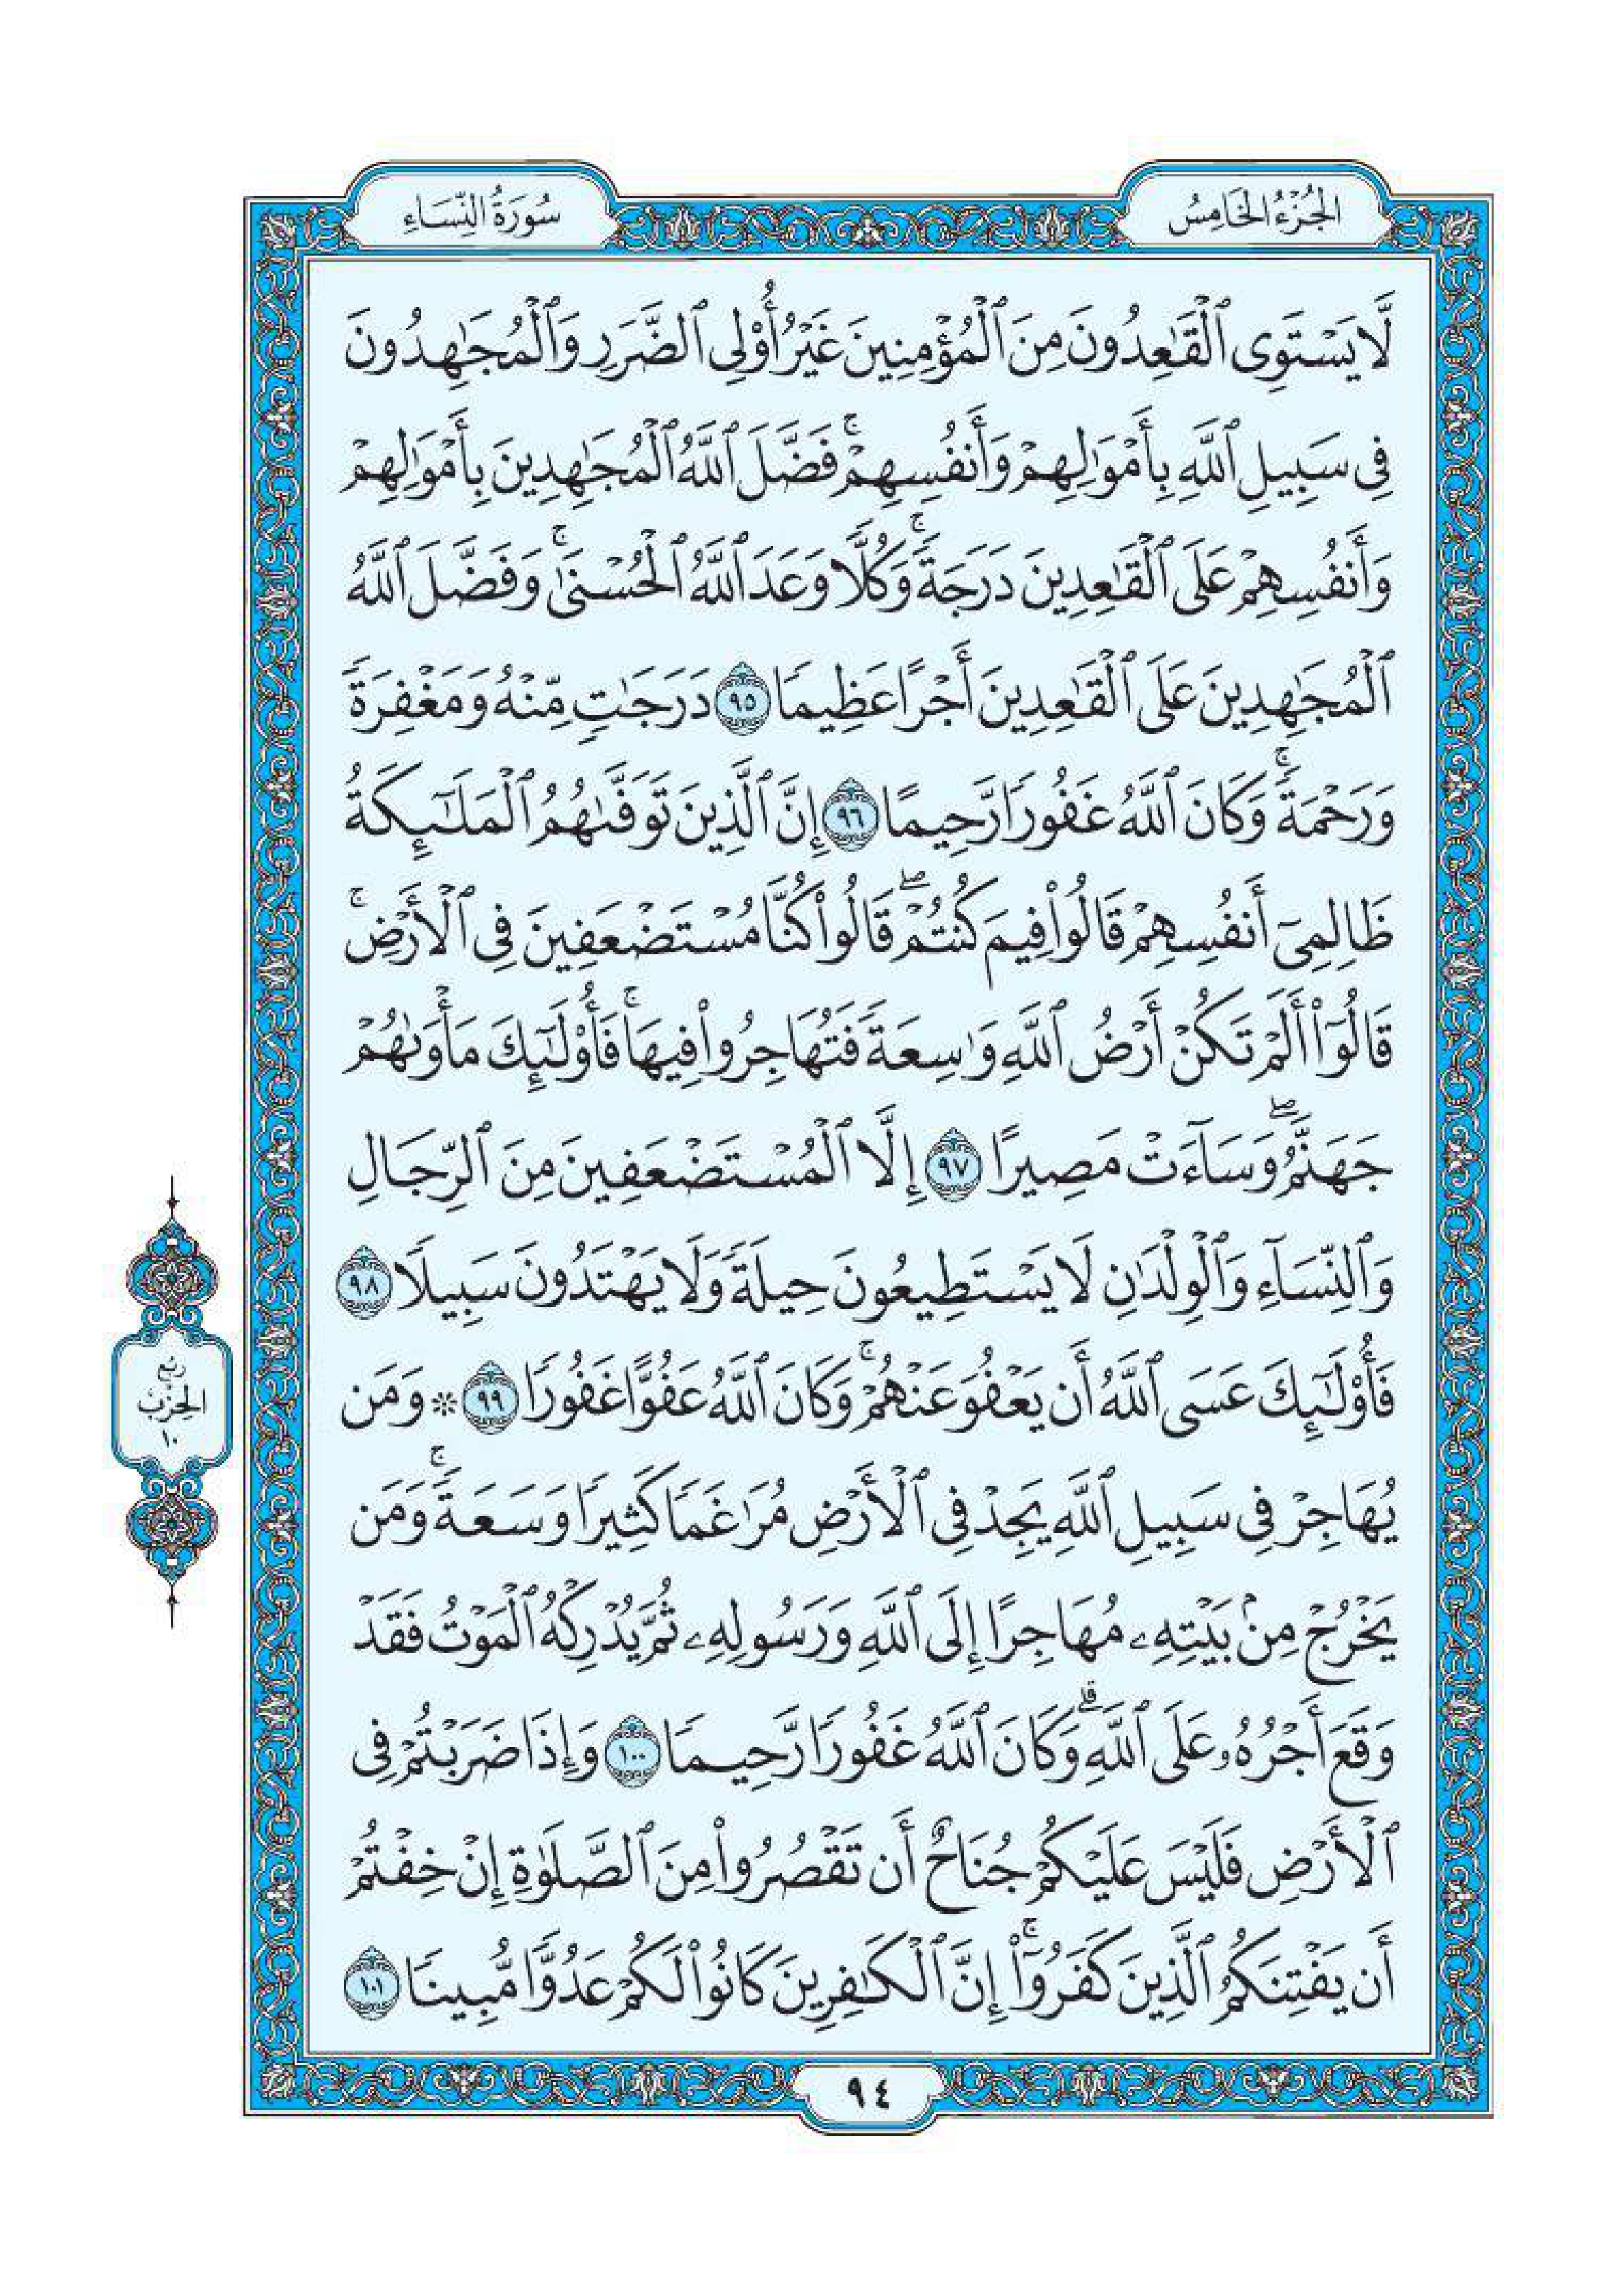 الجُزْءُ الخَامِسُ
سُورَةُ النِّسَاءِ
لَّا يَسْتَوِي ٱلْقَٰعِدُونَ مِنَ ٱلْمُؤْمِنِينَ غَيْرُ أُوْلِي ٱلضَّرَرِ وَٱلْمُجَٰهِدُونَ
فِي سَبِيلِ ٱللَّهِ بِأَمْوَٰلِهِمْ وَأَنفُسِهِمْۚ فَضَّلَ ٱللَّهُ ٱلْمُجَٰهِدِينَ بِأَمْوَٰلِهِمْ
وَأَنفُسِهِمْ عَلَى ٱلْقَٰعِدِينَ دَرَجَةًۚ وَكُلًّا وَعَدَ ٱللَّهُ ٱلْحُسْنَىٰۚ وَفَضَّلَ ٱللَّهُ
ٱلْمُجَٰهِدِينَ عَلَى ٱلْقَٰعِدِينَ أَجْرًا عَظِيمًا ٩٥ دَرَجَٰتٍ مِّنْهُ وَمَغْفِرَةً
وَرَحْمَةًۚ وَكَانَ ٱللَّهُ غَفُورًا رَّحِيمًا ٩٦ إِنَّ ٱلَّذِينَ تَوَفَّىٰهُمُ ٱلْمَلَٰٓئِكَةُ
ظَالِمِيٓ أَنفُسِهِمْ قَالُواْ فِيمَ كُنتُمْۖ قَالُواْ كُنَّا مُسْتَضْعَفِينَ فِي ٱلْأَرْضِۚ
قَالُوٓاْ أَلَمْ تَكُنْ أَرْضُ ٱللَّهِ وَٰسِعَةً فَتُهَاجِرُواْ فِيهَاۚ فَأُوْلَٰٓئِكَ مَأْوَىٰهُمْ
جَهَنَّمُۖ وَسَآءَتْ مَصِيرًا ٩٧ إِلَّا ٱلْمُسْتَضْعَفِينَ مِنَ ٱلرِّجَالِ
وَٱلنِّسَآءِ وَٱلْوِلْدَٰنِ لَا يَسْتَطِيعُونَ حِيلَةً وَلَا يَهْتَدُونَ سَبِيلًا ٩٨
فَأُوْلَٰٓئِكَ عَسَى ٱللَّهُ أَن يَعْفُوَ عَنْهُمْۚ وَكَانَ ٱللَّهُ عَفُوًّا غَفُورًا ٩٩ ۞ وَمَن
يُهَاجِرْ فِي سَبِيلِ ٱللَّهِ يَجِدْ فِي ٱلْأَرْضِ مُرَٰغَمًا كَثِيرًا وَسَعَةًۚ وَمَن
يَخْرُجْ مِنۢ بَيْتِهِۦ مُهَاجِرًا إِلَى ٱللَّهِ وَرَسُولِهِۦ ثُمَّ يُدْرِكْهُ ٱلْمَوْتُ فَقَدْ
وَقَعَ أَجْرُهُۥ عَلَى ٱللَّهِۗ وَكَانَ ٱللَّهُ غَفُورًا رَّحِيمًا ١٠٠ وَإِذَا ضَرَبْتُمْ فِي
ٱلْأَرْضِ فَلَيْسَ عَلَيْكُمْ جُنَاحٌ أَن تَقْصُرُواْ مِنَ ٱلصَّلَوٰةِ إِنْ خِفْتُمْ
أَن يَفْتِنَكُمُ ٱلَّذِينَ كَفَرُوٓاْۚ إِنَّ ٱلْكَٰفِرِينَ كَانُواْ لَكُمْ عَدُوًّا مُّبِينًا ١٠١
رُبْعُ
الحِزْبِ
١٠
٩٤